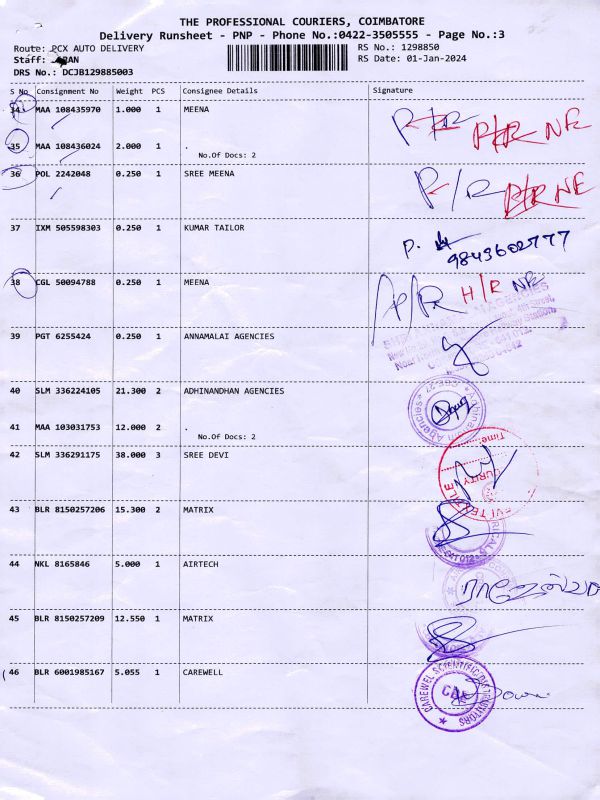 THE PROFESSIONAL COURIERS, COIMBATORE
Delivery Runsheet - PNP - Phone No.:0422-3505555 - Page No.:3
Route: PCX AUTO DELIVERY
RS No.: 1298850
Staff:
RS Date: 01-Jan-2024
DRS No.: DCJB129885003
S No Consignment No Weight PCS Consignee Details Signature
34 MAA 108435970 1.000 1 MEENA
P/R P/R NR
35 MAA 108436024 2.000 1 .
No.Of Docs: 2
36 POL 2242048 0.250 1 SREE MEENA
P/R P/R NE
37 IXM 505598303 0.250 1 KUMAR TAILOR
P.
9843602777
38 CGL 50094788 0.250 1 MEENA
A/R H/R NR
AGENCIES
39 PGT 6255424 0.250 1 ANNAMALAI AGENCIES
40 SLM 336224105 21.300 2 ADHINANDHAN AGENCIES
Agencies
41 MAA 103031753 12.000 2 .
No.Of Docs: 2
42 SLM 336291175 38.000 3 SREE DEVI
Time:
43 BLR 8150257206 15.300 2 MATRIX
44 NKL 8165846 5.000 1 AIRTECH
45 BLR 8150257209 12.550 1 MATRIX
46 BLR 6001985167 5.055 1 CAREWELL
CAREWEL SCIENTIFIC DISTRIBUTORS